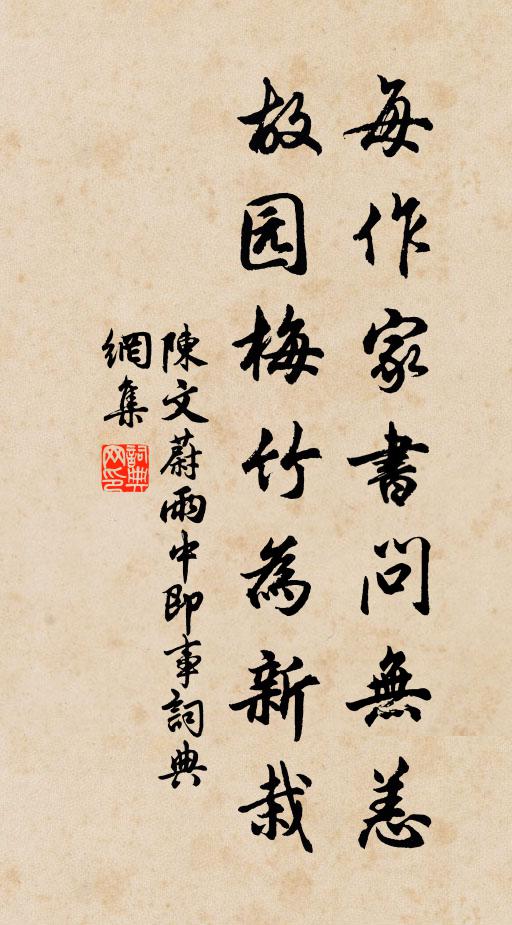 每作家書問無恙
故园梅竹為新栽
陳文蔚雨中即事詞典
網集
詞典
网印